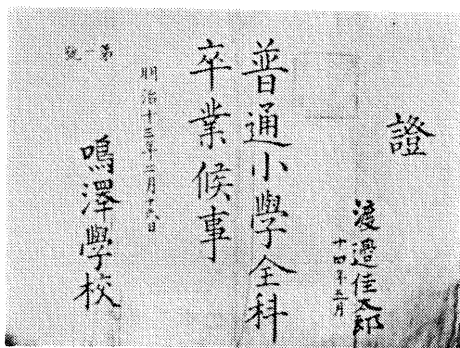 證
渡邊佳太郎
十四年五月
普通小學全科
卒業候事
明治十三年二月十六日
鳴澤學校
第一號